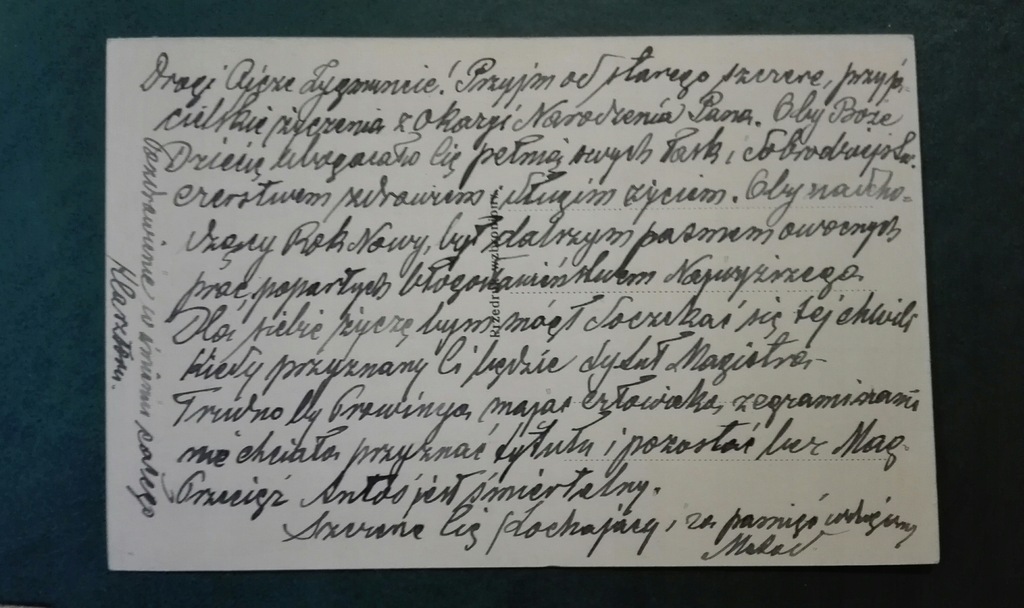 Drogi Ojcze Zygmuncie! Przyjm od starego szczere, przyja-
cielskie życzenia z okazji Narodzenia Pana. Oby Boże
Dziecię ubogacało Cię pełnią swych łask i
czerstwem zdrowiem długim życiem. Oby nadcho-
dzący Rok Nowy, był dalszym pasmem owocnych
prac, popartych błogosławieństwem Najwyższego
Dla siebie życzę bym mógł doczekać się tej chwili
kiedy przyznany Ci będzie tytuł Magistra
Trudno by Prowincja mając człowieka z egzaminami
nie chciała przyznać tytułu i pozostać bez Mag-
Przecież Antoś jest śmiertelny.
Szczerze Cię kochający, za pamięć wdzięczny
Pozdrowienie w imieniu całego
Klasztoru.